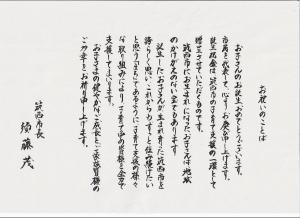 お祝いのことば
お子さんのお誕生、おめでとうございます。
市民を代表して、心よりお慶び申し上げます。
誕生祝金は、筑西市の子育て支援の一環として
贈呈させていただくものです。
筑西市にお生まれになったお子さんは、地域
のかけがえのない宝でもあります。
誕生したお子さんが、生まれ育った筑西市を
誇らしく思い、これからもずっと住み続けたい
と思う「まち」であるように、子育て支援の様々
な取り組みにより、子育て中の皆様を全力で
支援してまいります。
お子さまの健やかなご成長と、ご家族皆様の
ご多幸をお祈り申し上げます。
筑西市長
須藤 茂